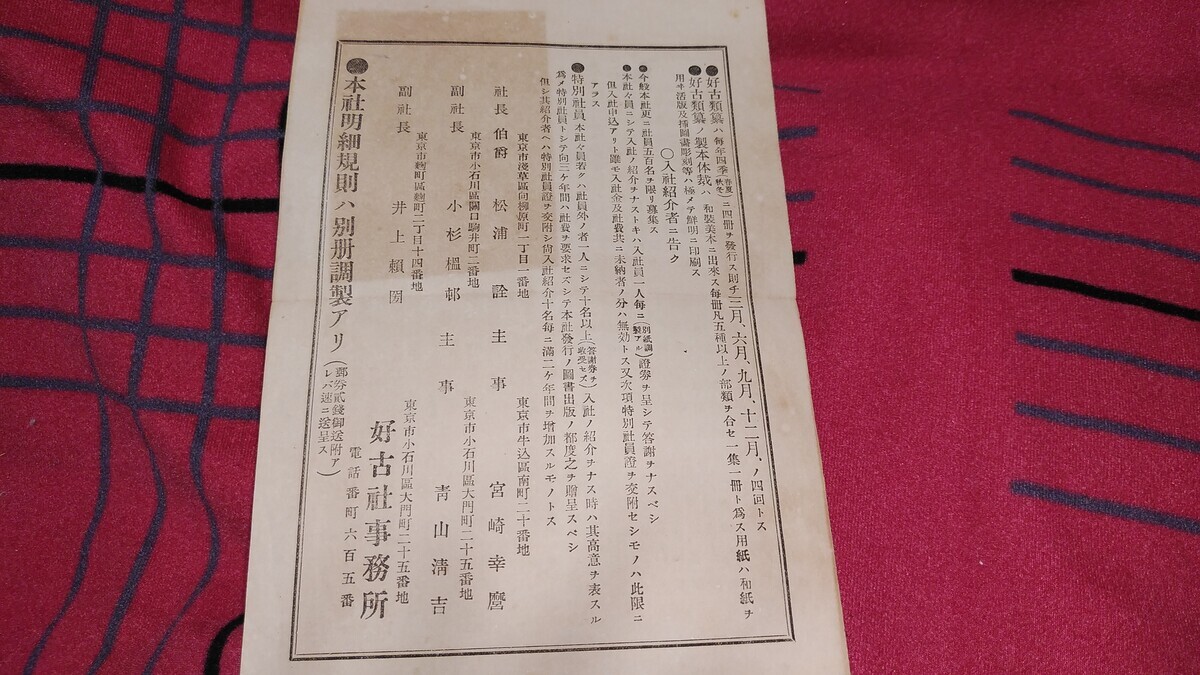 ●好古類纂ハ毎年四季(春夏秋冬)ニ四冊ヲ發行ス則チ三月、六月、九月、十二月、ノ四回トス
●好古類纂ノ製本体裁ハ和裝美本ニ出來ス毎冊凡五種以上ノ部類ヲ合セ一集一冊ト爲ス用紙ハ和紙ヲ
用ヰ活版及挿圖畫彫刻等ハ極メテ鮮明ニ印刷ス
〇入社紹介者ニ告ク
●今般本社更ニ社員五百名ヲ限リ募集ス
●本社々員ニシテ入社ノ紹介ヲナストキハ入社員一人毎ニ(別紙調製アル)證劵ヲ呈シテ答謝ヲナスベシ
但入社申込アリト雖モ入社金及社費共ニ未納者ノ分ハ無効トス又次項特別社員證ヲ交附セシモノハ此限ニ
アラス
●特別社員 本社々員若クハ社員外ノ者一人ニシテ十名以上(答謝劵ヲ收受セズ)入社ノ紹介ヲナス時ハ其高意ヲ表スル
爲メ特別社員トシテ向三ケ年間ハ社費ヲ要求セズシテ本社發行ノ圖書出版ノ都度之ヲ贈呈スベシ
但シ其紹介者ヘハ特別社員證ヲ交附シ尙入社紹介十名毎ニ滿二ケ年間ヲ增加スルモノトス
東京市淺草區向柳原町一丁目一番地
社長伯爵 松浦詮
東京市牛込區南町二十番地
主事 宮崎幸麿
東京市小石川區關口駒井町二番地
副社長 小杉榲邨
東京市小石川區大門町二十五番地
主事 靑山淸吉
東京市麴町區麴町二丁目十四番地
副社長 井上賴圀
東京市小石川區大門町二十五番地
好古社事務所
電話番町六百五番
●本社明細規則ハ別册調製アリ(郵劵貳錢御送附アレバ速ニ送呈ス)